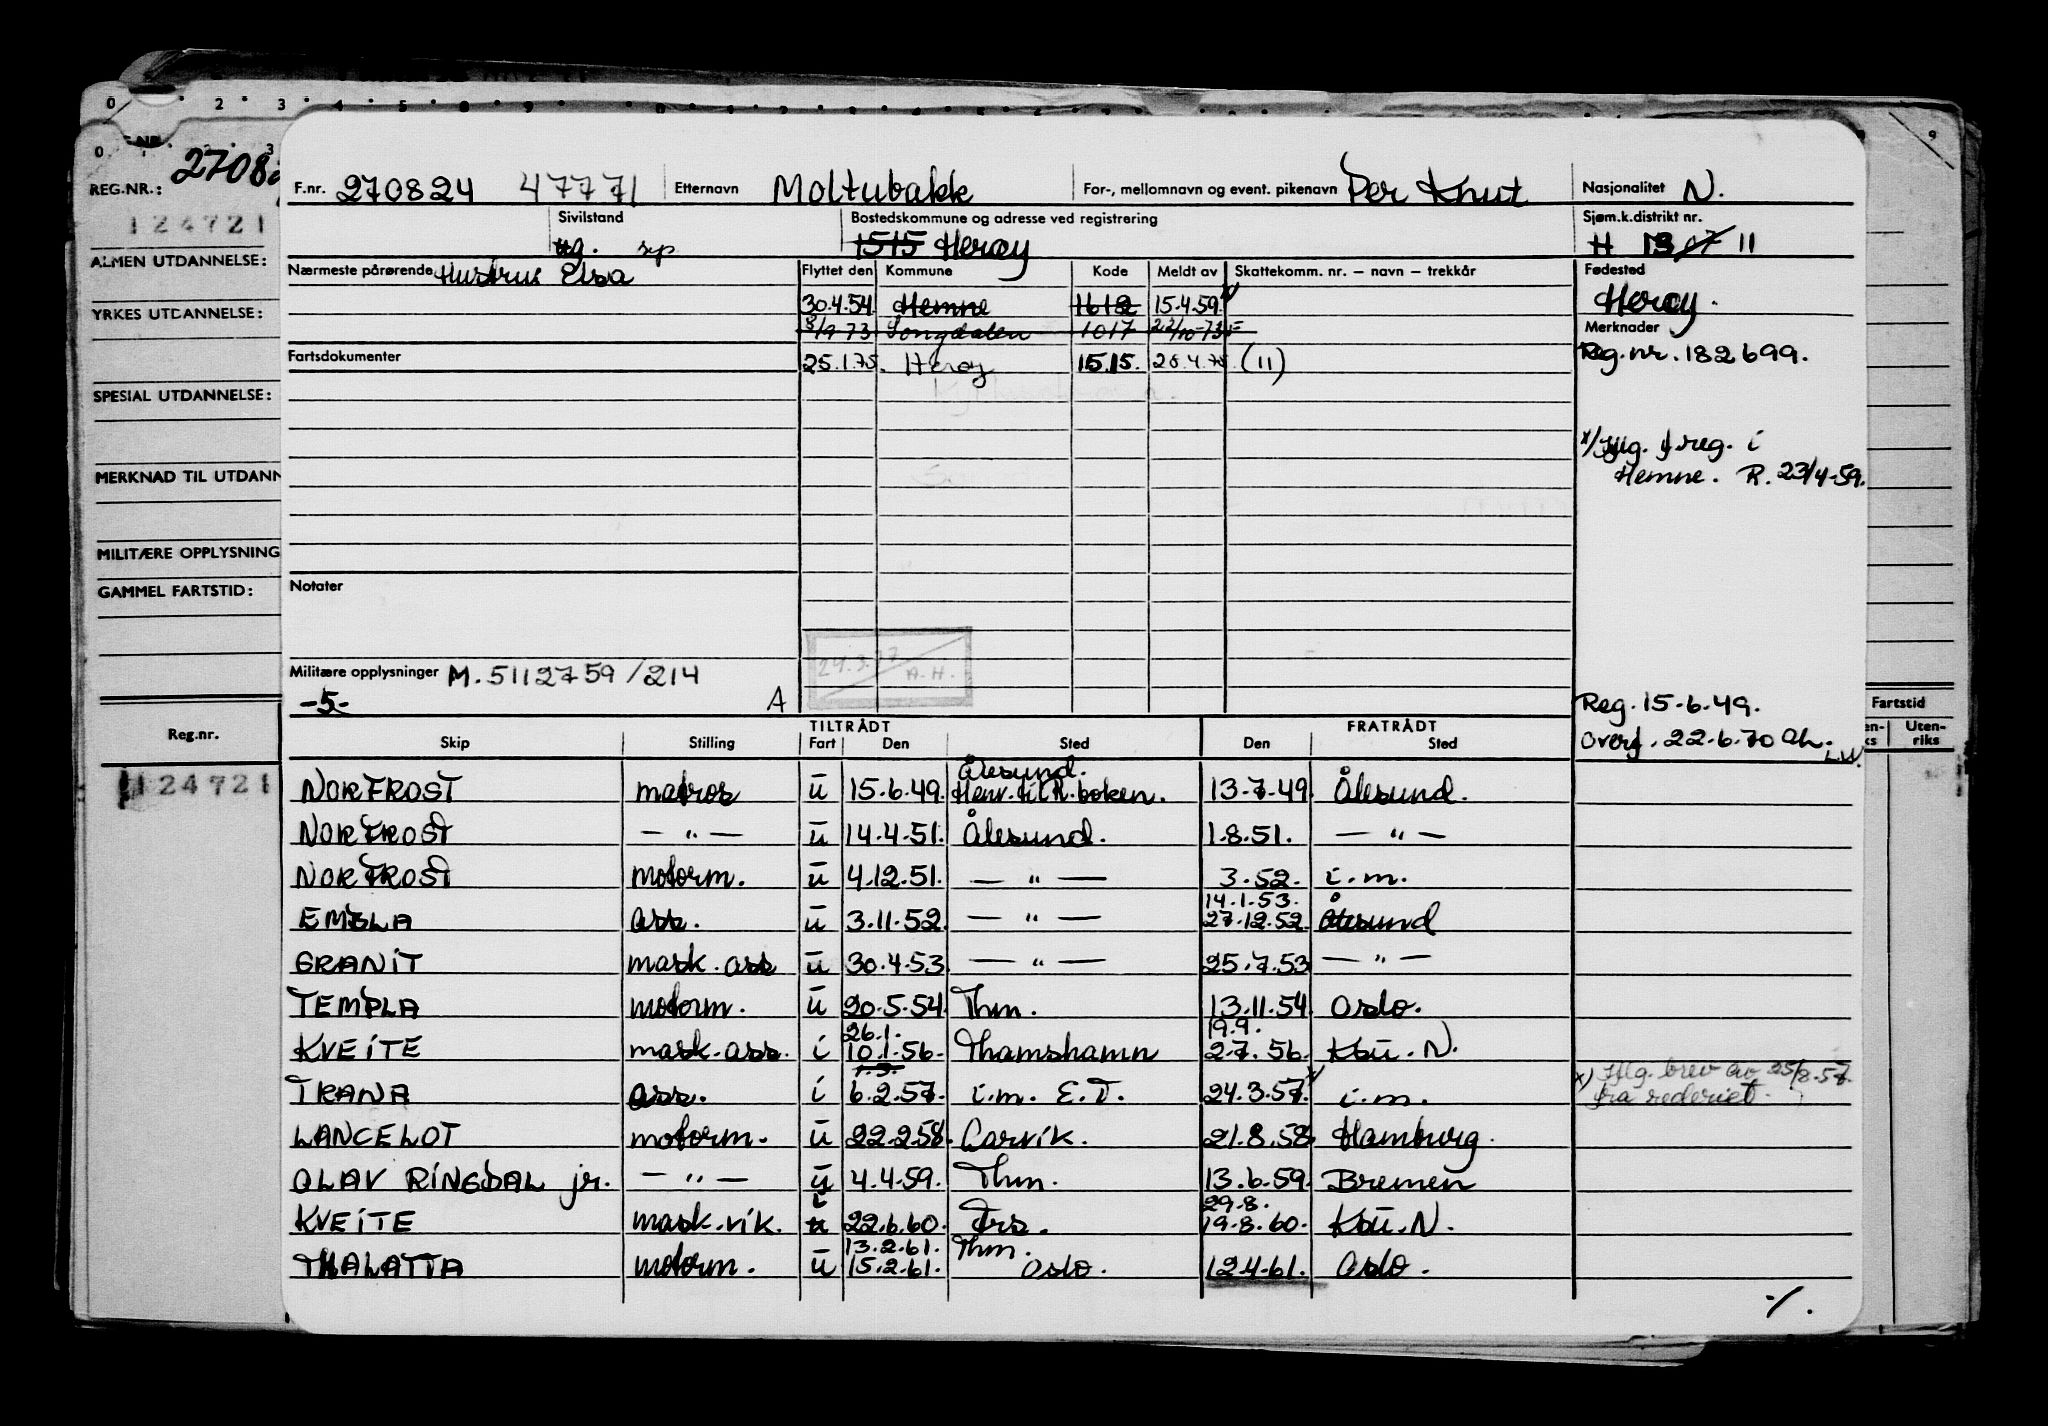 0 2 3 4 5 8 9
0 3
REG.NR.: 2708
124721
ALMEN UTDANNELSE:
YRKES UTDANNELSE:
SPESIAL UTDANNELSE:
MERKNAD TIL UTDANN
MILITÆRE OPPLYSNING
GAMMEL FARTSTID:
Reg.nr.
124721
F.nr. 270824 47771 Etternavn Moltubakk For-, mellomnavn og event. pikenavn Per Knut Nasjonalitet N.
Sivilstand Bostedskommune og adresse ved registrering Sjøm.k.distrikt nr.
ug. sep 1515 Herøy H 13 07 11
Nærmeste pårørende Hustru: Elsa Flyttet den Kommune Kode Meldt av Skattekomm. nr. – navn – trekkår Fødested
30.4.54 Hemne 1612 15.4.59 x/ Herøy.
8/9 73 Songdalen 1017 22/10-73 Merknader
Reg.nr. 182699.
Fartsdokumenter 25.1.75. Herøy 1515. 28.4.75 (11)
x/ Iflg. f.reg. i
Hemne. R. 23/4-59.
Notater
24.3.77
A.H.
Militære opplysninger M. 5112759/214
-5- A
Reg. 15-6-49.
Overf. 22.6.70 Ah.
L.W.
TILTRÅDT FRATRÅDT
Skip Stilling Fart Den Sted Den Sted
Fartstid
Uten-riks
Ålesund.
NORFROST matros u 15.6.49. Henv. til R.boken. 13-7-49. Ålesund.
NORFROST — " — u 14.4.51. Ålesund. 1.8.51. — " —
NORFROST motorm. u 4.12.51. — " — 3.52. i.m.
14.1.53.
EMBLA ass. u 3.11.52. — " — 27.12.52. Ålesund
GRANIT mask.ass u 30.4.53 — " — 25.7.53 — " —
TEMPLA motorm. u 20.5.54. Thm. 13.11.54. Oslo.
26.1. 19.9.
KVEITE mask.ass. i 10.1.56. Thamshamn 2.7.56. Ksu. N.
1.3.
TRANA ass. i 6.2.57. i.m. E.T. 24.3.57. x/ i.m. x) Iflg. brev av 25/8-57.
fra rederiet.
LANCELOT motorm. u 22.2.58. Larvik. 21.8.58. Hamburg.
OLAV RINGDAL jr. — " — u 4.4.59. Thm. 13.6.59. Bremen
i 29.8.
KVEITE mask.vik. u 22.6.60. Trs. 19.8.60. Ksu. N.
13.2.61. Thm.
THALATTA motorm. u 15.2.61. Oslo. 12.4.61. Oslo.
-/.